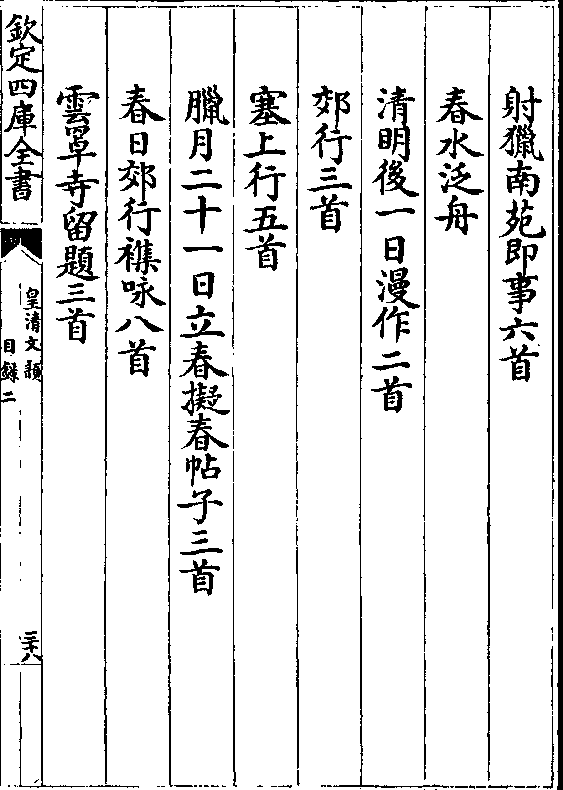 射獵南苑即事六首
春水泛舟
清明後一日漫作二首
郊行三首
塞上行五首
臘月二十一日立春擬春帖子三首
春日郊行襍咏八首
雲罩寺留題三首
欽定四庫全書
皇清文頴
目錄二
三十八